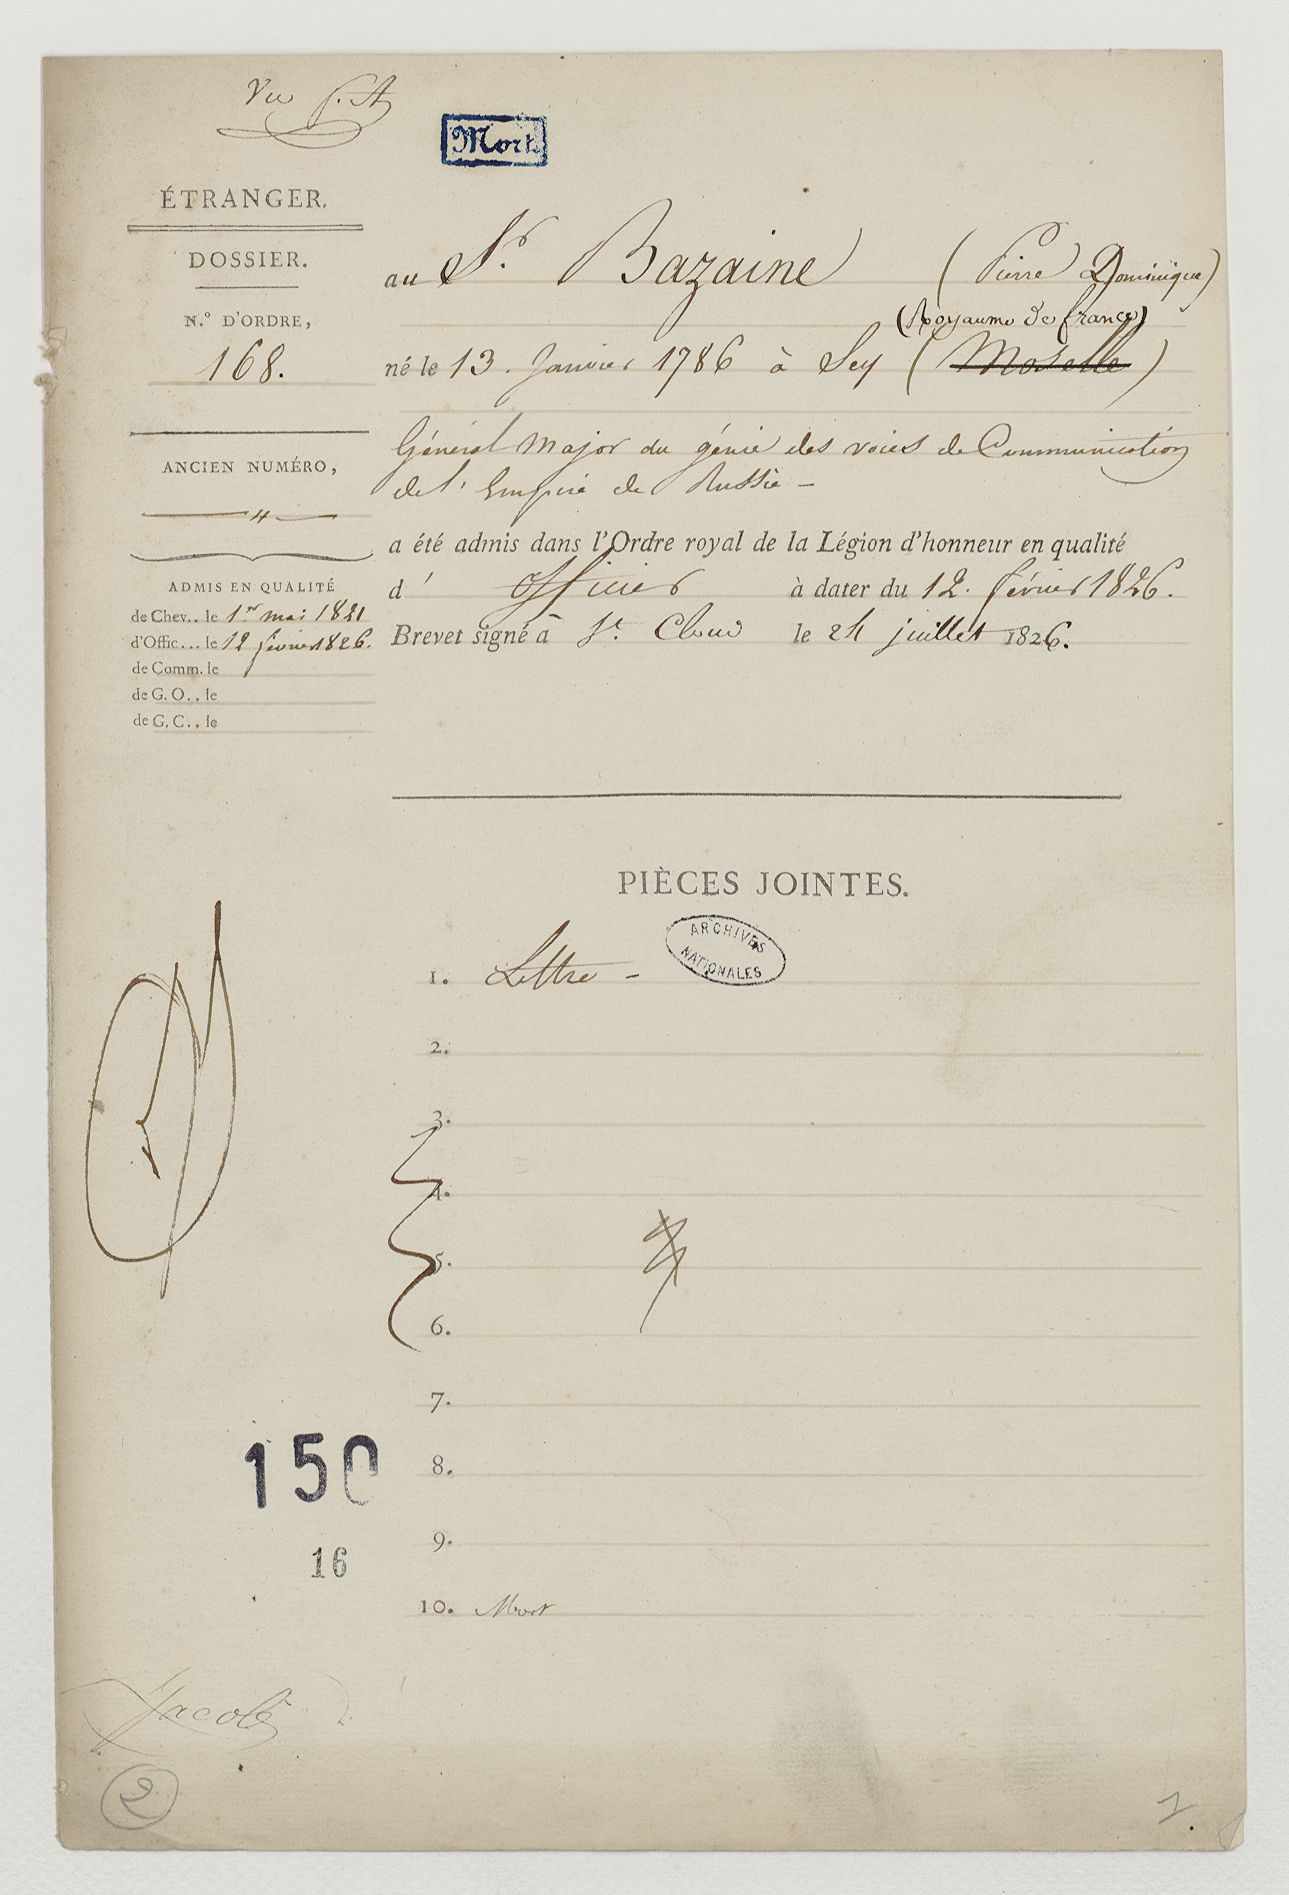 Vu
Mort.
ÉTRANGER.
DOSSIER.
N.° D'ORDRE,
168.
au Sr. Bazaine (Pierre Dominique)
(Royaume de france)
né le 13. Janvier 1786 à Sey (Moselle)
Général Major du génie des voies de Communication
de l'Empire de Russie -
ANCIEN NUMÉRO,
a été admis dans l'Ordre royal de la Légion d'honneur en qualité
d' officier à dater du 12. février 1826.
Brevet signé à St. Cloud le 24 juillet 1826.
ADMIS EN QUALITÉ
de Chev.. le 1er mai 1821
d'Offic... le 12 février 1826.
de Comm. le
de G. O.. le
de G. C.. le
PIÈCES JOINTES.
ARCHIVES
NATIONALES
1. Lettre -
2.
3.
4.
5.
6.
7.
8.
9.
10. Mort
150
16
Jacob
2
1.